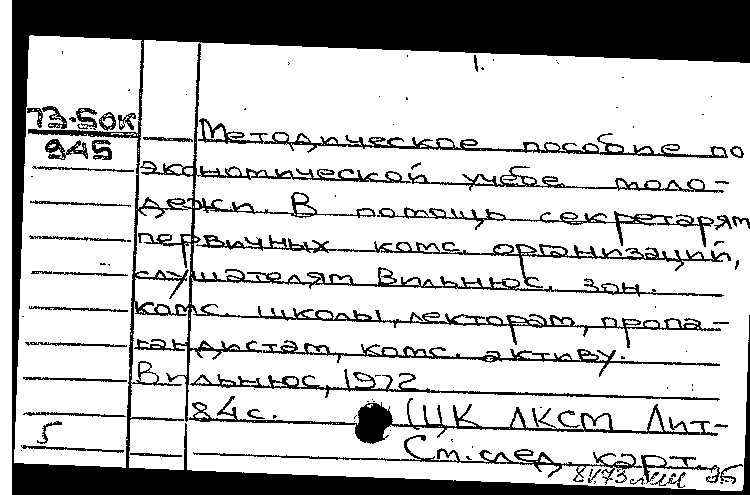 1.
73-5ок
945
Методическое пособие по
экономической учебе моло-
дежи. В помощь секретарям
первичных комс. организаций,
слушателям Вильнюс. зон.
комс. школы, лекторам, пропа-
гандистам, комс. активу.
Вильнюс, 1972.
84 с. (ЦК ЛКСМ Лит-
5
См. след. карт.